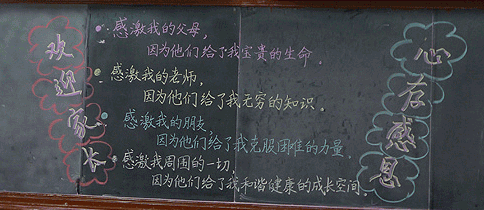 欢迎家长
感激我的父母,
因为他们给了我宝贵的生命.
感激我的老师,
因为他们给了我无穷的知识.
感激我的朋友
因为他们给了我克服困难的力量.
感激我周围的一切,
因为他们给了我和谐健康的成长空间.
心存感恩